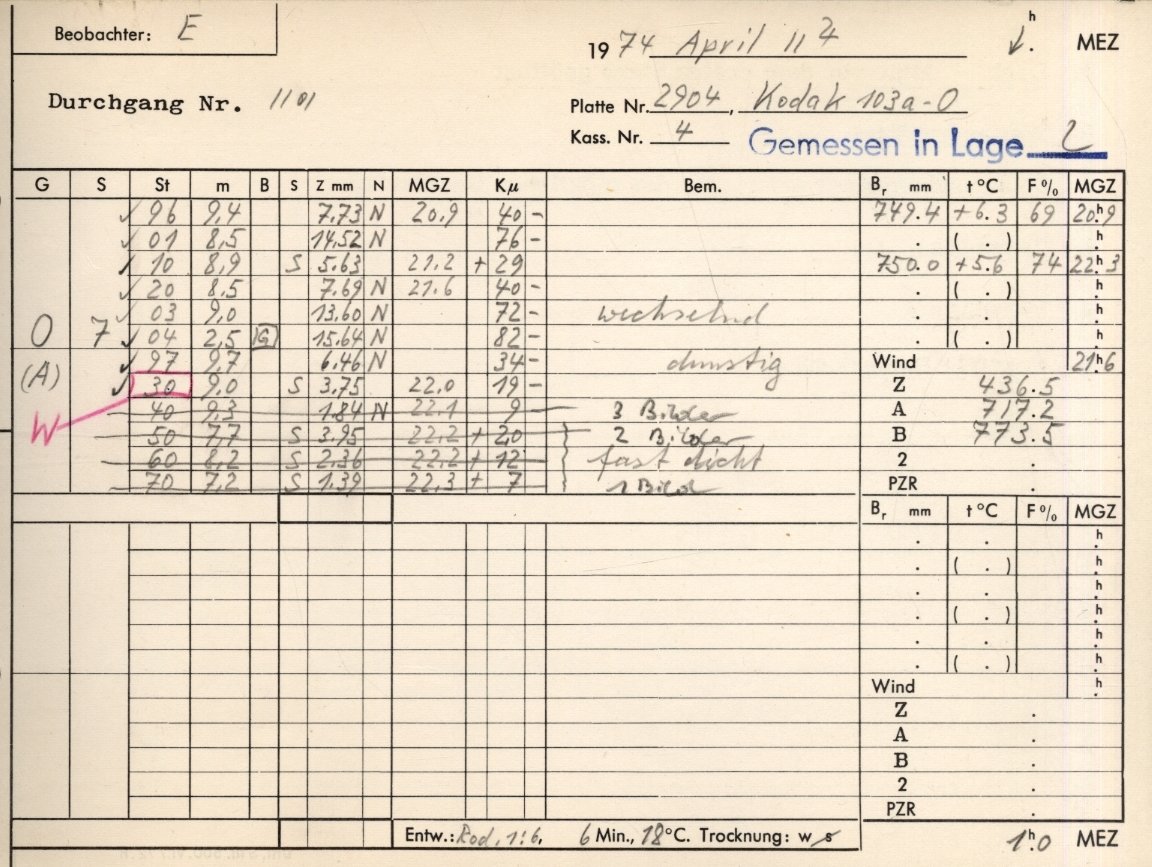 Beobachter: E
1974 April 11 h MEZ
Durchgang Nr. 1101
Platte Nr. 2904, Kodak 103a-O
Kass. Nr. 4 Gemessen in Lage 2
G S St m B S Z mm N MGZ Kμ Bem. Br mm t°C F% MGZ
96 9,4 7,73 N 20,9 40 - 749.4 +6.3 69 20h9
01 8,5 14,52 N 76 - . ( . ) h
10 8,9 S 5,63 21,2 + 29 750.0 +5.6 74 22h3
20 8,5 7,69 N 21,6 40 - . ( . ) h
03 9,0 13,60 N 72 - wechselnd . . h
O 7 04 2,5 G 15,64 N 82 - . ( . ) h
(A) 97 9,7 6,46 N 34 - dunstig Wind 21h6
30 9,0 S 3,75 22,0 19 - Z 436.5
W 40 9,3 1,84 N 22,1 9 - 3 Bilder A 717.2
50 7,7 S 3,95 22,2 + 20 2 Bilder B 773.5
60 8,2 S 2,36 22,2 + 12 fast dicht 2 .
70 7,2 S 1,39 22,3 + 7 1 Bild PZR .
Br mm t°C F% MGZ
. . h
. ( . ) h
. . h
. ( . ) h
. . h
. ( . ) h
Wind h
Z .
A .
B .
2 .
PZR .
Entw.: Rod. 1:6, 6 Min., 18°C. Trocknung: w s 1h0 MEZ